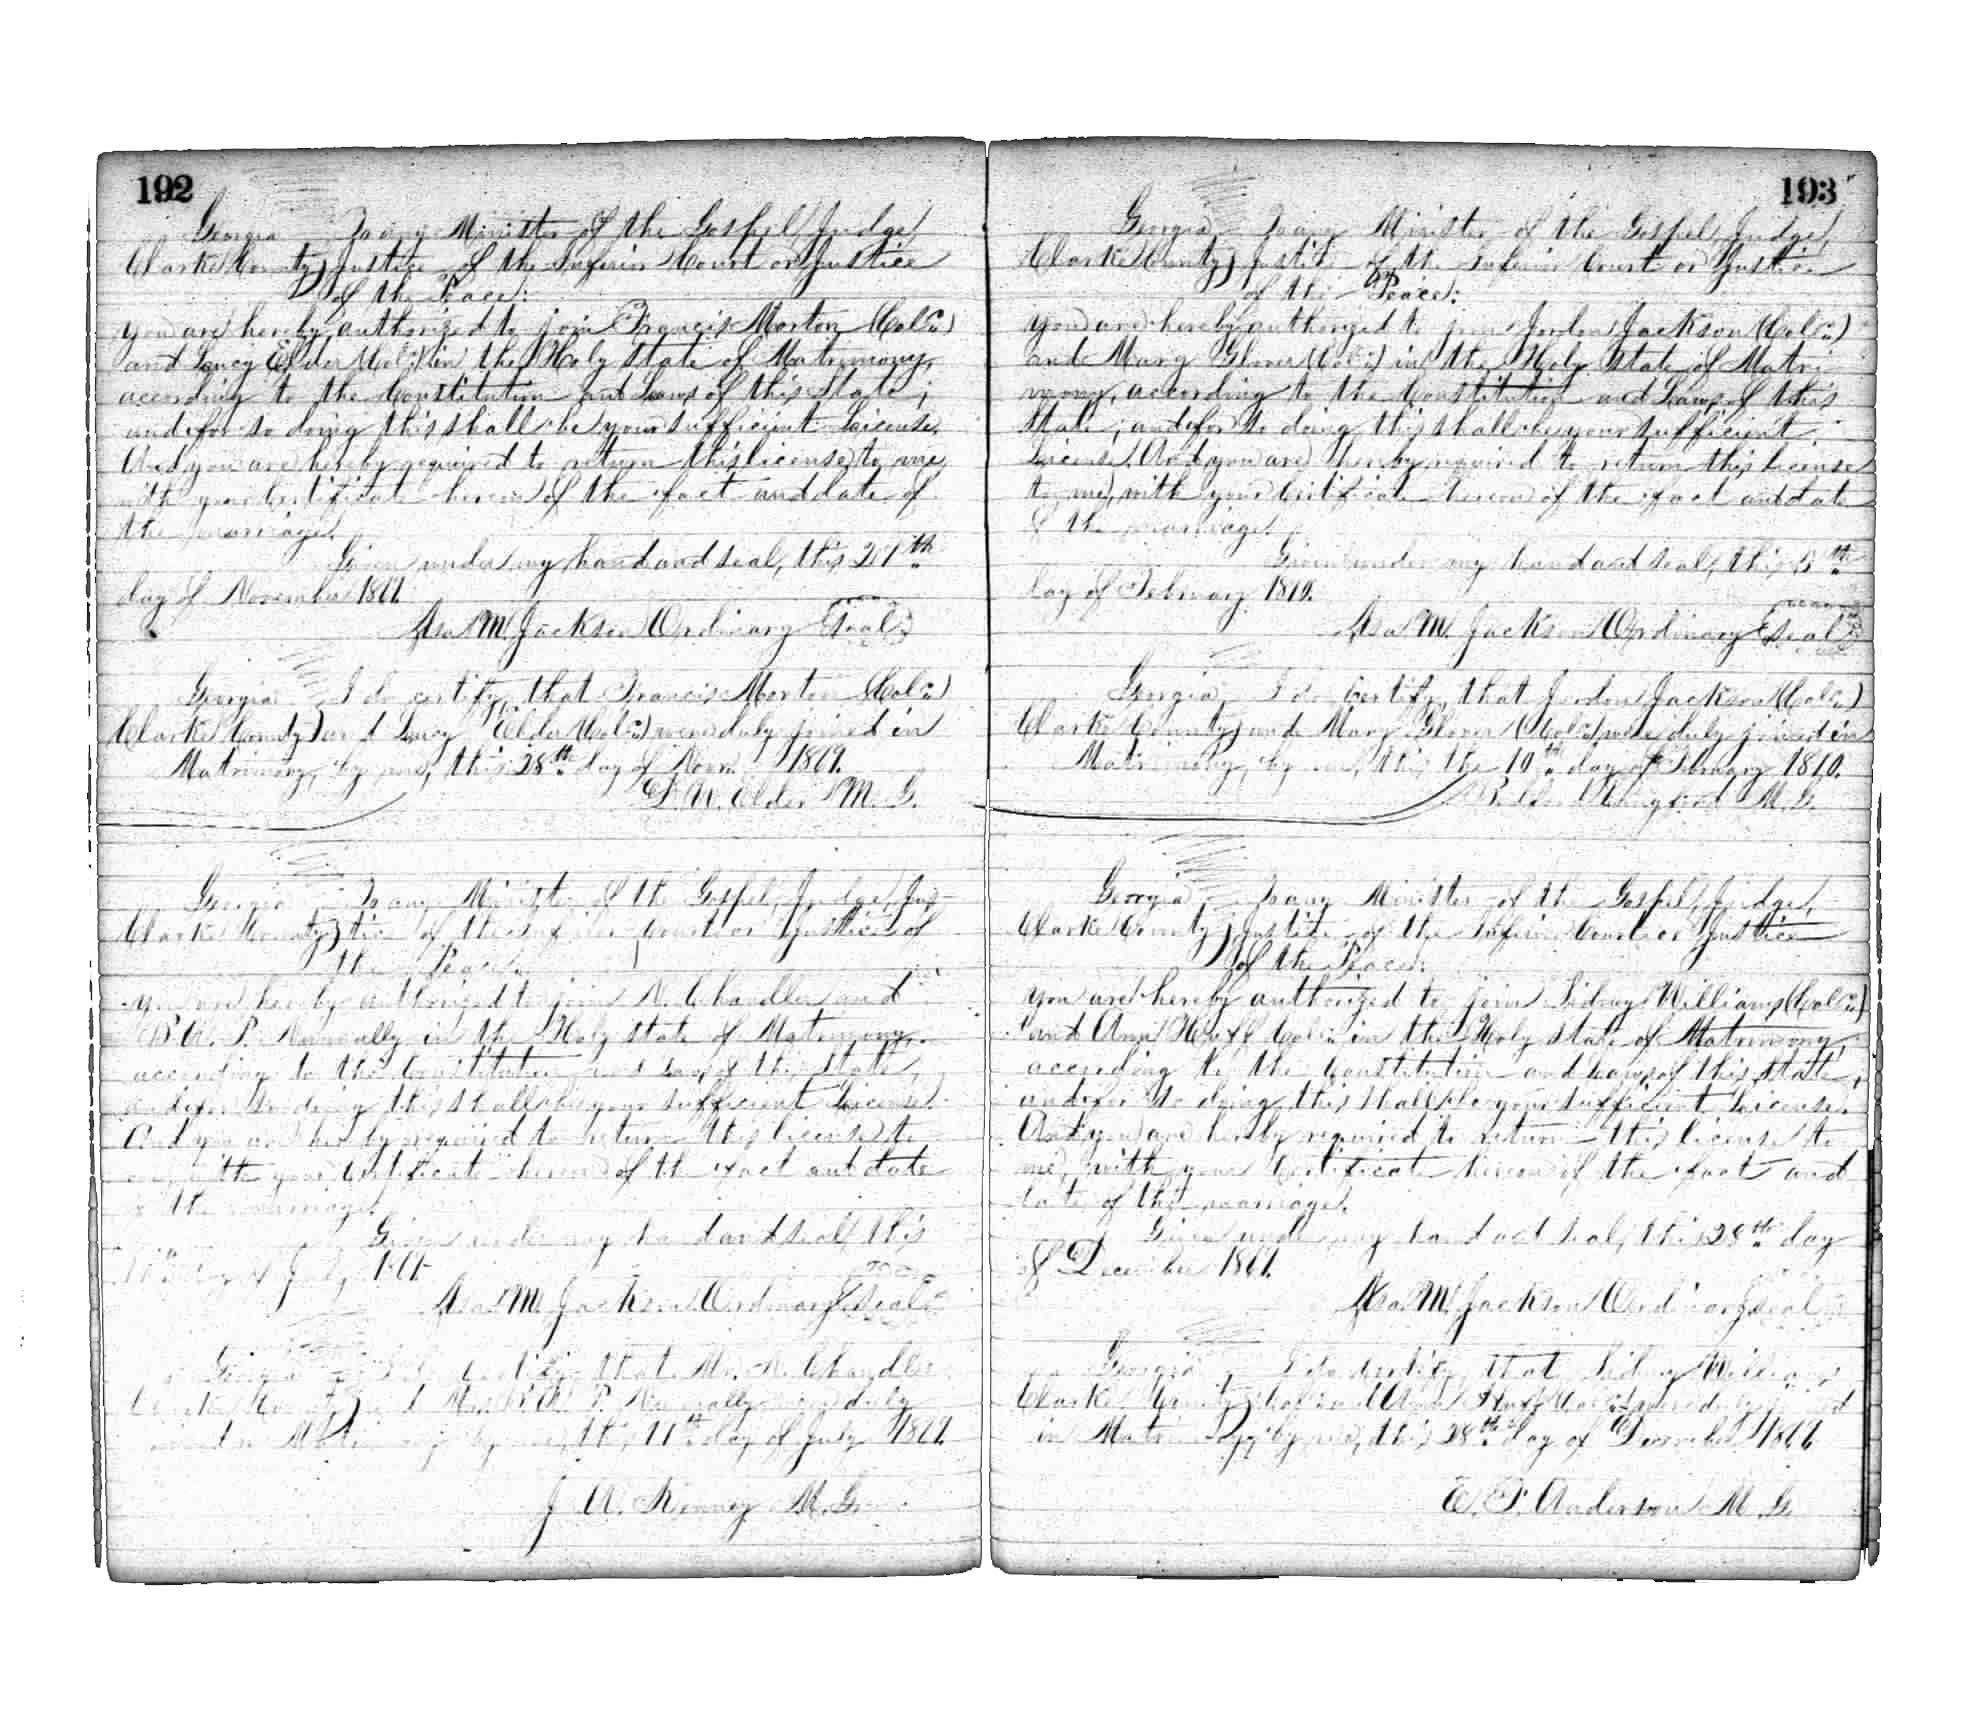 192
Georgia To any Minister of the Gospel, Judge,
Clarke County) Justice of the Inferior Court or Justice
of the Peace:
You are hereby authorized to join Francis Morton (Col'd)
and Lucy Elder (Col'd) in the Holy state of Matrimony,
according to the Constitution and Laws of this State;
and for so doing this shall be your sufficient License.
And you are hereby required to return this license to me,
with your Certificate hereon of the fact and date of
the marriage.
Given under my hand and seal, this 27th
day of November 1869.
Asa M. Jackson Ordinary Seal
Georgia I do certify, that Francis Morton (Col'd)
Clarke County) and Lucy Elder (Col'd) were duly joined in
Matrimony, by me, this 28th day of Novr. 1869.
Elder M. G.
Georgia To any Minister of the Gospel, Judge, Jus-
Clarke County) tice of the Inferior Court or Justice of
the Peace:
you are hereby authorized to join Chandler and
P. Nunnally in the Holy state of Matrimony,
according to the Constitution and Laws of this State,
and for so doing this shall be your sufficient License.
And you are hereby required to return this license to
me, with your Certificate hereon of the fact and date
of the marriage.
Given under my hand and seal, this
day of July
Asa M. Jackson Ordinary Seal
Georgia I do certify, that Mr. Chandler
Clarke County) and P. Nunnally were duly
joined in Matrimony by me, this 11th day of July 1869.
J. A. Kenney M. G.
193
Georgia To any Minister of the Gospel, Judge,
Clarke County) Justice of the Inferior Court or Justice
of the Peace:
You are hereby authorized to join Jordon Jackson (Col'd)
and Mary Glover (Col'd) in the Holy state of Matri-
mony, according to the Constitution and Laws of this
State; and for so doing, this shall be your sufficient
License. And you are hereby required to return this license
to me, with your Certificate hereon of the fact and date
of the marriage.
Given under my hand and seal, this 5th
day of February 1870.
Asa M. Jackson Ordinary Seal
Georgia, I do certify, that Jordon Jackson (Col'd)
Clarke County) and Mary Glover (Col'd) were duly joined in
Matrimony, by me, this the 10th day of February 1870.
M. G.
Georgia, To any Minister of the Gospel, Judge,
Clarke County) Justice of the Inferior Court or Justice
of the Peace:
You are hereby authorized to join Sidney Williams (Col'd)
and Ann Huff Col'd in the Holy state of Matrimony,
according to the Constitution and Laws of this State,
and for so doing, this shall be your sufficient License.
And you are hereby required to return this license to
me, with your Certificate hereon of the fact and
date of the marriage.
Given under my hand and seal, this 28th day
of December 1869.
Asa M. Jackson Ordinary Seal
Georgia, I do certify, that Sidney Williams
Clarke County) Col'd and Ann Huff (Col'd) were duly joined
in Matrimony by me, this 28th day of December 1869.
E. P. Anderson M. G.